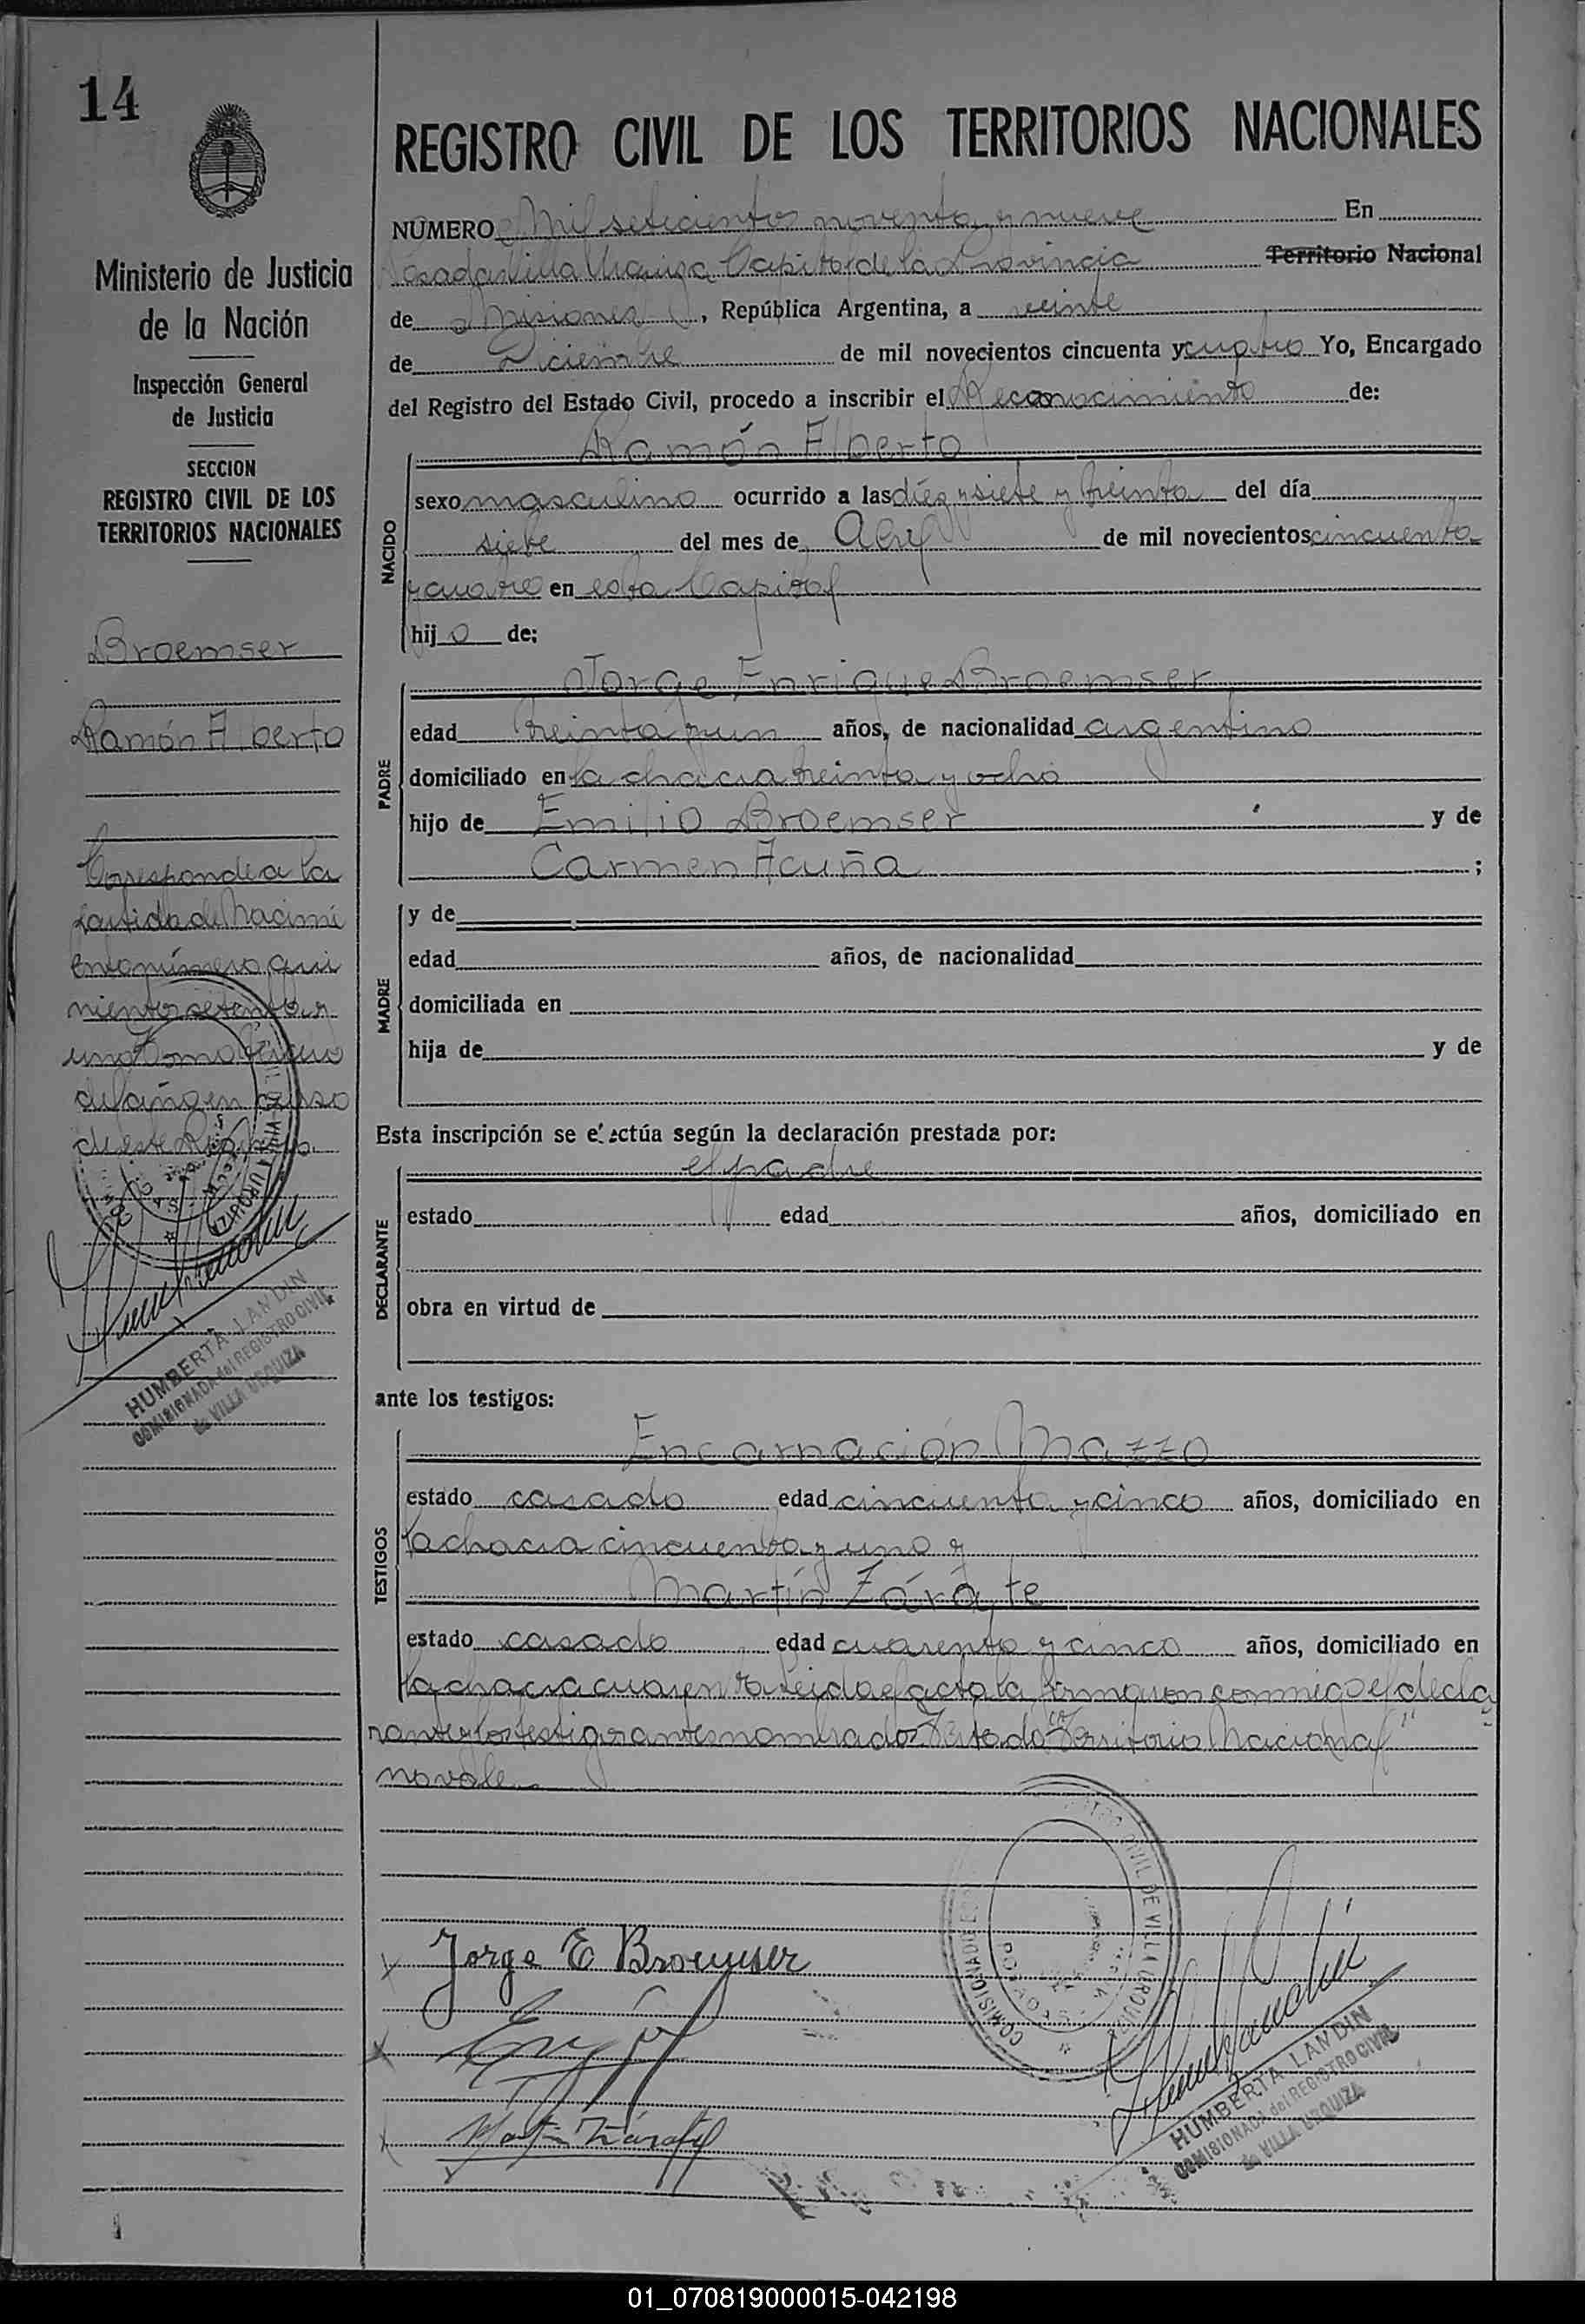 14
Ministerio de Justicia
de la Nación
Inspección General
de Justicia
SECCION
REGISTRO CIVIL DE LOS
TERRITORIOS NACIONALES
Broemser
Ramón Alberto
Corresponde a la
partida de Nacimi
ento número qui
nientos setenta y
uno Tomo
del año en curso
de este Registro.
HUMBERTA LANDIN
COMISIONADA del REGISTRO CIVIL
de VILLA URQUIZA
REGISTRO CIVIL DE LOS TERRITORIOS NACIONALES
NUMERO Mil setecientos noventa y nueve En
Posadas Villa Urquiza Capital de la Provincia Territorio Nacional
de Misiones, República Argentina, a veinte
de Diciembre de mil novecientos cincuenta y cuatro Yo, Encargado
del Registro del Estado Civil, procedo a inscribir el Reconocimiento de:
Ramón Alberto
NACIDO
sexo masculino ocurrido a las diez y siete y treinta del día
siete del mes de Abril de mil novecientos cincuenta
y cuatro en esta Capital
hijo de:
Jorge Enrique Broemser
PADRE
edad treinta y un años, de nacionalidad argentino
domiciliado en la chacra treinta y ocho
hijo de Emilio Broemser y de
Carmen Acuña ;
MADRE
y de
edad años, de nacionalidad
domiciliada en
hija de y de
Esta inscripción se efectúa según la declaración prestada por:
el padre
DECLARANTE
estado edad años, domiciliado en
obra en virtud de
ante los testigos:
Encarnación Mazzo
TESTIGOS
estado casado edad cincuenta y cinco años, domiciliado en
la chacra cincuenta y uno y
Martín Zárate
estado casado edad cuarenta y cinco años, domiciliado en
la chacra cuarenta Leida el acta la firmaron conmigo el decla
rante y los testigos antes nombrados Testado Territorio Nacional
no vale.
Jorge E Broemser
Martín Zárate
COMISIONADO CIVIL DE VILLA URQUIZA
POSADAS
HUMBERTA LANDIN
COMISIONADA del REGISTRO CIVIL
de VILLA URQUIZA
01_070819000015-042198